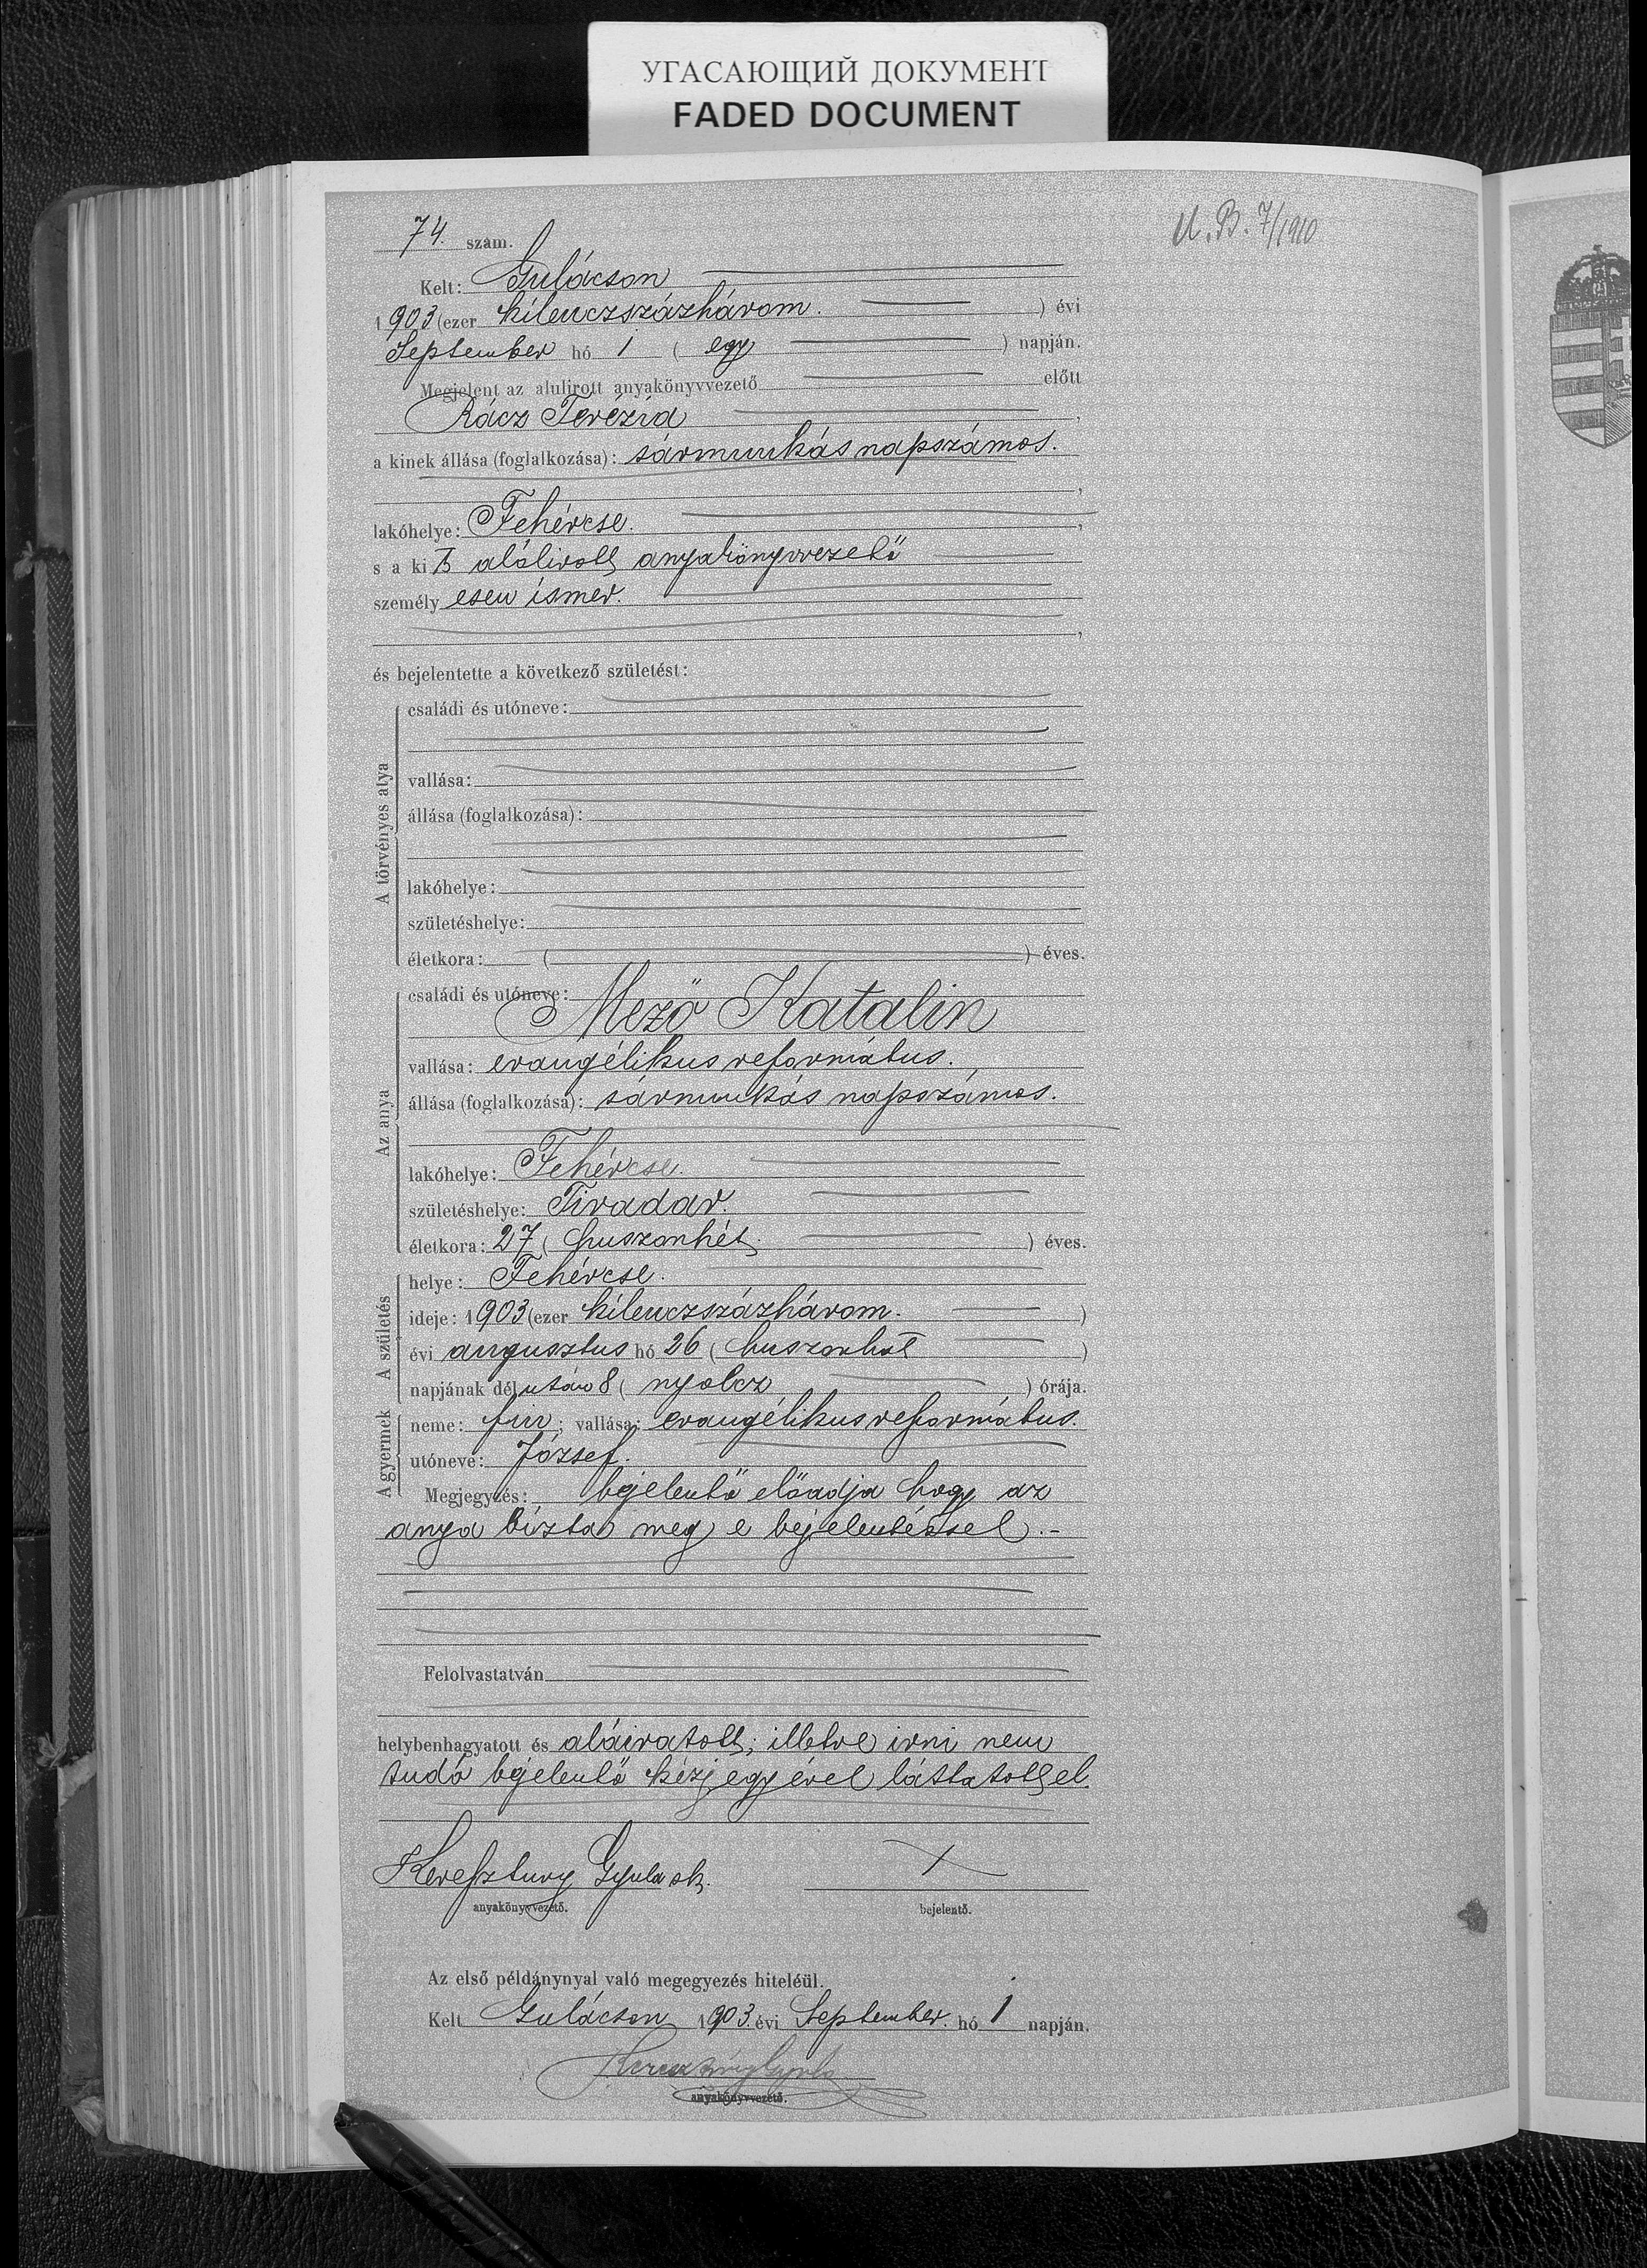 УГАСАЮЩИЙ ДОКУМЕНТ
FADED DOCUMENT
74. szám.
U. B. 7/1910
Kelt: Gulácson
1903 (ezer kilenczszázhárom. ) évi
September hó 1 ( egy ) napján.
Megjelent az alulirott anyakönyvvezető előtt
Rácz Terézia ,
a kinek állása (foglalkozása): sármunkás napszámos.
,
lakóhelye: Fehércse. ,
s a kit alólirott anyakönyvvezető
személyesen ismer.
,
és bejelentette a következő születést:
A törvényes atya
családi és utóneve:
vallása:
állása (foglalkozása):
lakóhelye:
születéshelye:
életkora: ( ) éves.
Az anya
családi és utóneve:
Mező Katalin
vallása: evangélikus református.
állása (foglalkozása): sármunkás napszámos.
lakóhelye: Fehércse.
születéshelye: Tivadar.
életkora: 27 ( huszonhét. ) éves.
A születés
helye: Fehércse.
ideje: 1903 (ezer kilenczszázhárom. )
évi augusztus hó 26 ( huszonhat )
napjának délután 8 ( nyolcz ) órája.
A gyermek
neme: fiu; vallása: evangélikus református.
utóneve: József.
Megjegyzés: bejelentő előadja hogy az
anya bízta meg e bejelentéssel.-
Felolvastatván
helybenhagyatott és aláiratott; illetve irni nem
tudó bejelentő kézjegyével láttatott el.
Keresztury Gyula sk.
X
anyakönyvvezető.
bejelentő.
Az első példánynyal való megegyezés hiteléül.
Kelt Gulácson 1903. évi September. hó 1 napján.
Keresztury Gyula
anyakönyvvezető.